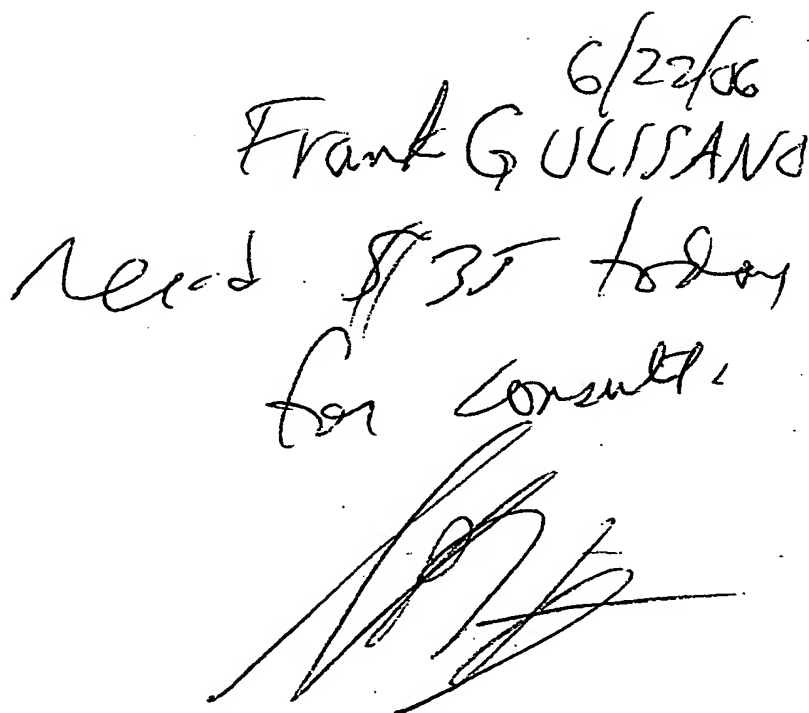 6/22/06
Frank GULISSANO
recd. $35 today
for consult.